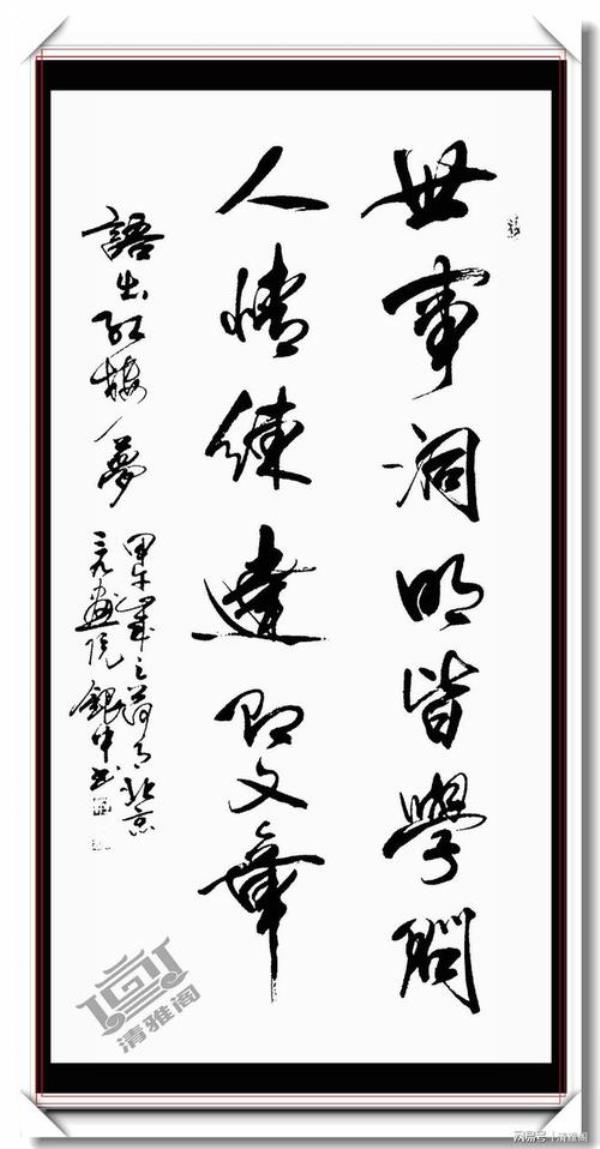 世事洞明皆學問
人情練達即文章
語出紅樓夢
甲午歲之荷月北京
三元畫院銀中書
清雅阁
网易号 | 清雅阁